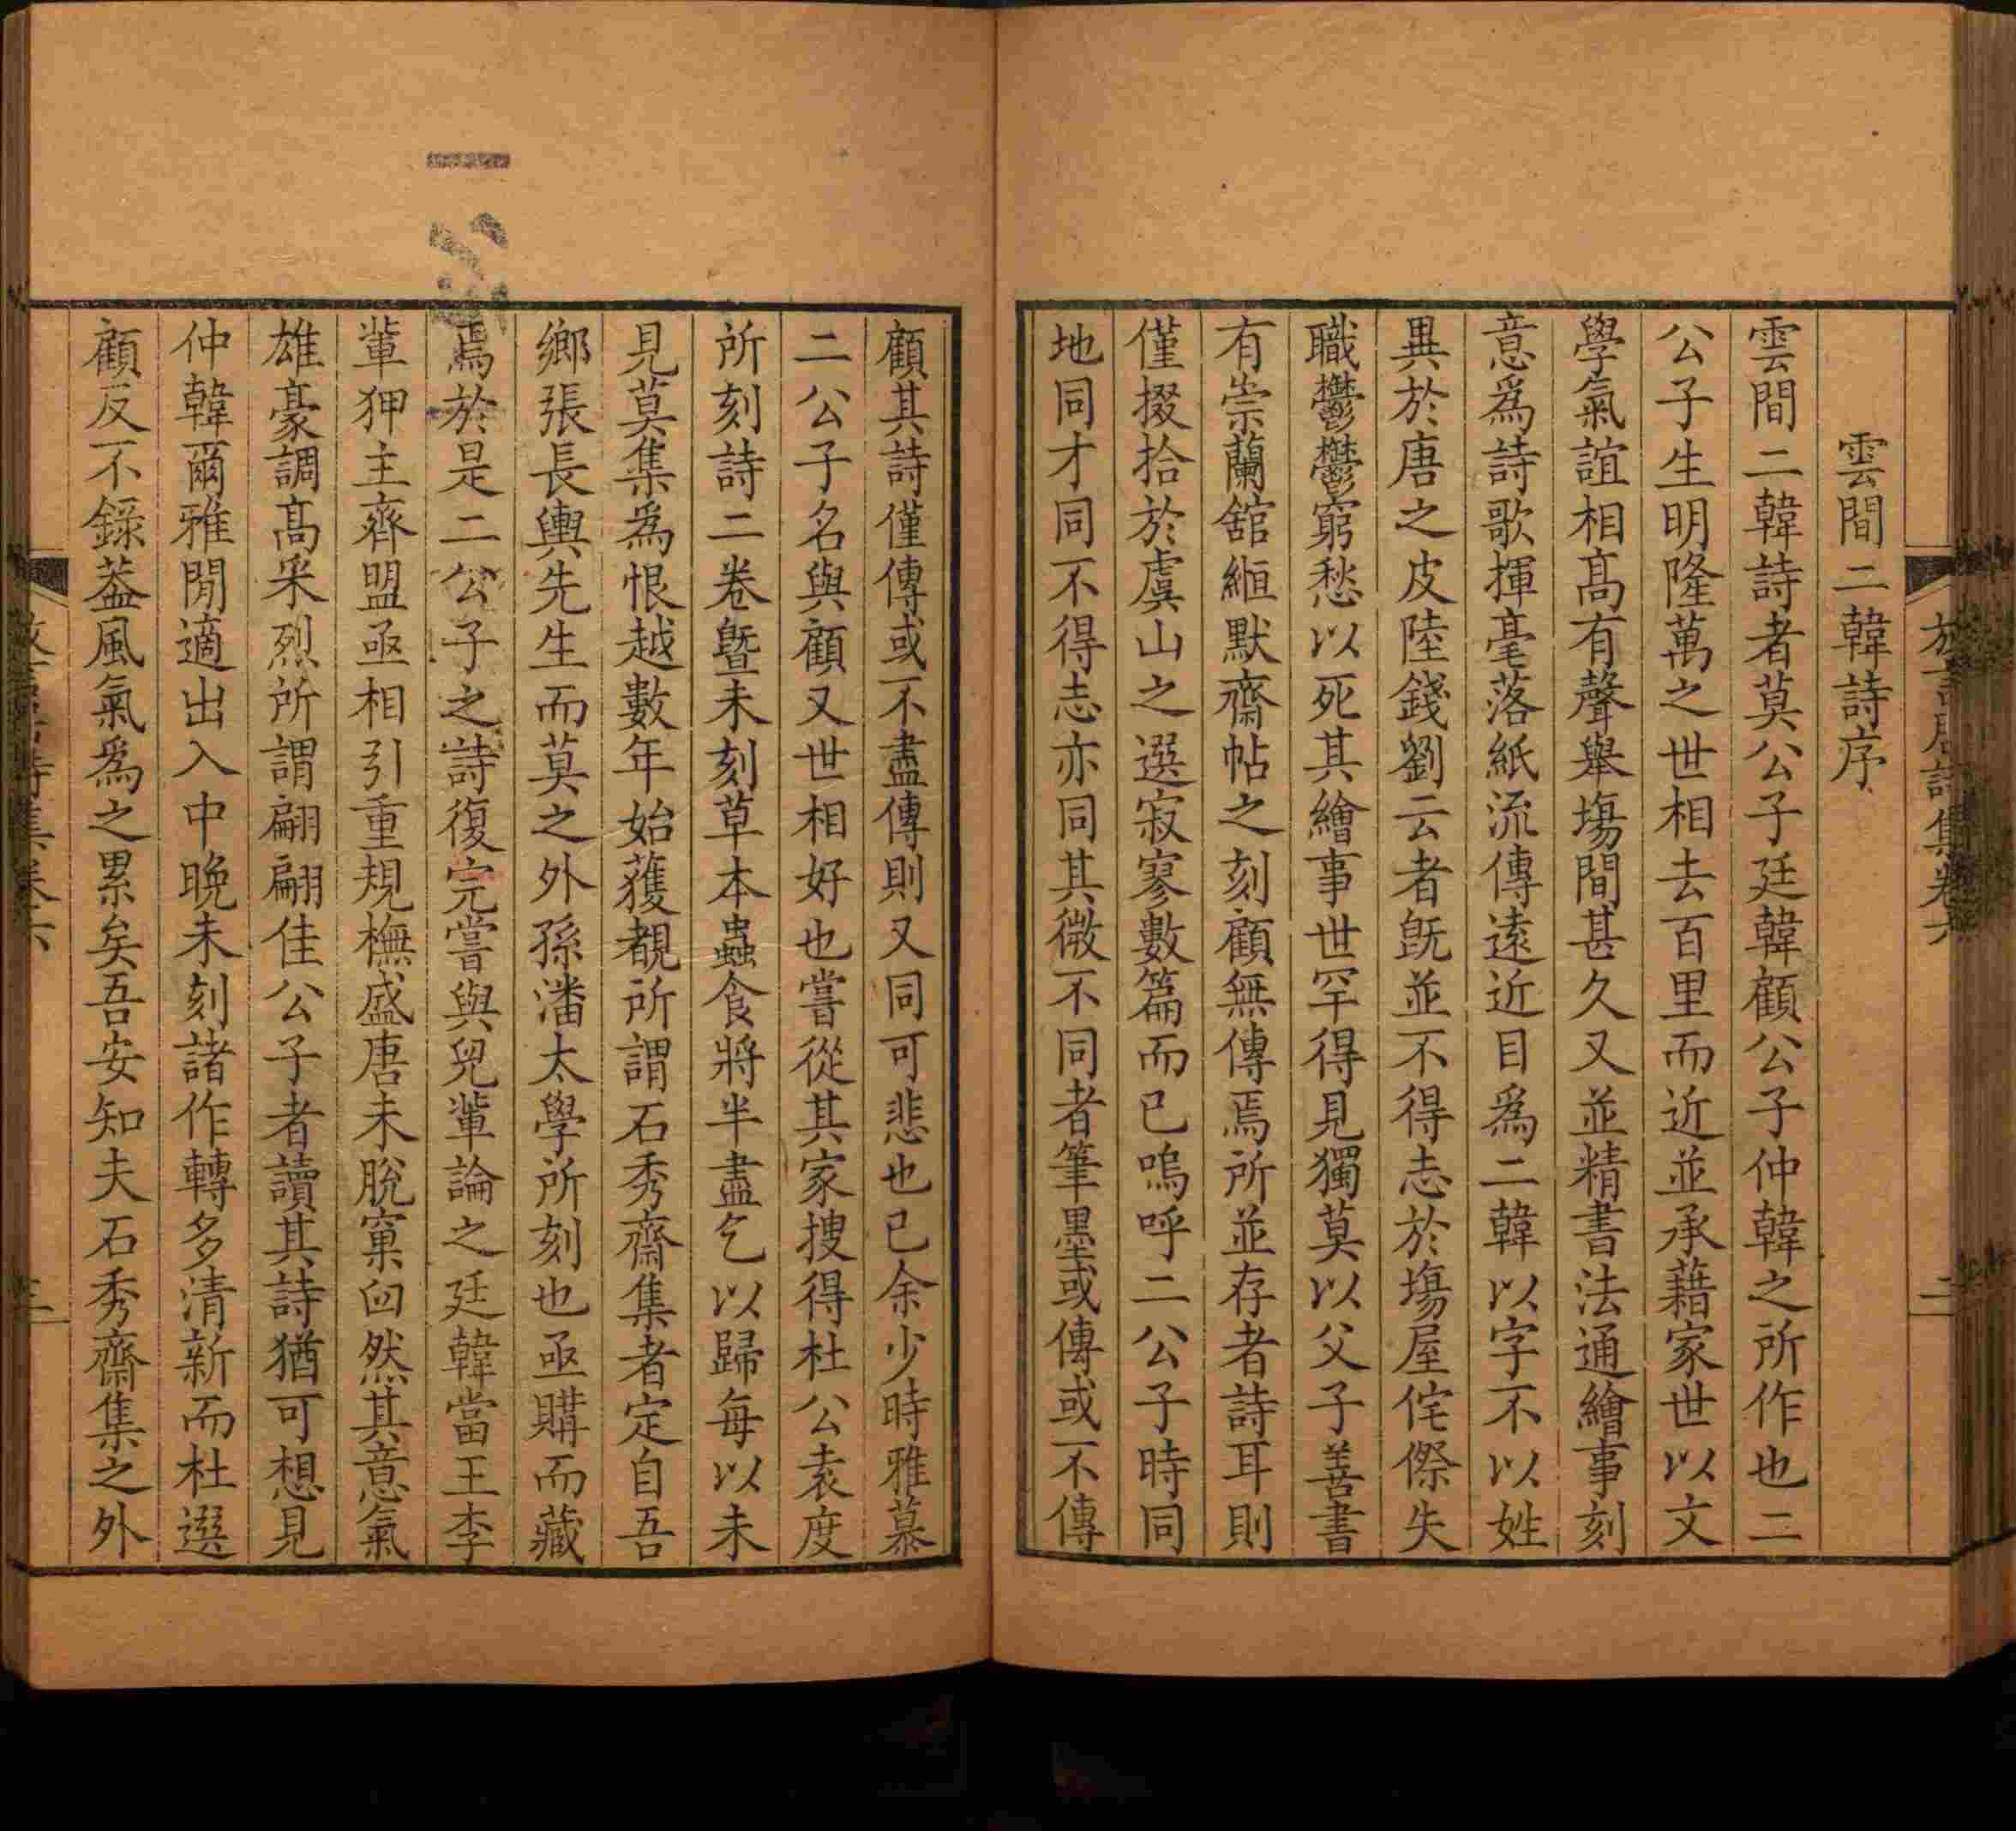 雲間二韓詩序
雲間二韓詩者莫公子廷韓顧公子仲韓之所作也二
公子生明隆萬之世相去百里而近並承藉家世以文
學氣誼相高有聲舉塲間甚久又並精書法通繪事刻
意爲詩歌揮毫落紙流傳遠近目爲二韓以字不以姓
異於唐之皮陸錢劉云者旣並不得志於塲屋侘傺失
職鬱鬱窮愁以死其繪事世罕得見獨莫以父子善書
有崇蘭舘緪默齋帖之刻顧無傳焉所並存者詩耳則
僅掇拾於虞山之選寂寥數篇而已嗚呼二公子時同
地同才同不得志亦同其微不同者筆墨或傳或不傳
顧其詩僅傳或不盡傳則又同可悲也已余少時雅慕
二公子名與顧又世相好也嘗從其家搜得杜公袁度
所刻詩二卷曁未刻草本蟲食將半盡乞以歸每以未
見莫集爲恨越數年始獲覩所謂石秀齋集者定自吾
鄉張長輿先生而莫之外孫潘太學所刻也亟購而藏
焉於是二公子之詩復完嘗與兒輩論之廷韓當王李
輩狎主齊盟亟相引重規橅盛唐未脫窠臼然其意氣
雄豪調高采烈所謂翩翩佳公子者讀其詩猶可想見
仲韓爾雅閒適出入中晚未刻諸作轉多清新而杜選
顧反不錄葢風氣爲之累矣吾安知夫石秀齋集之外